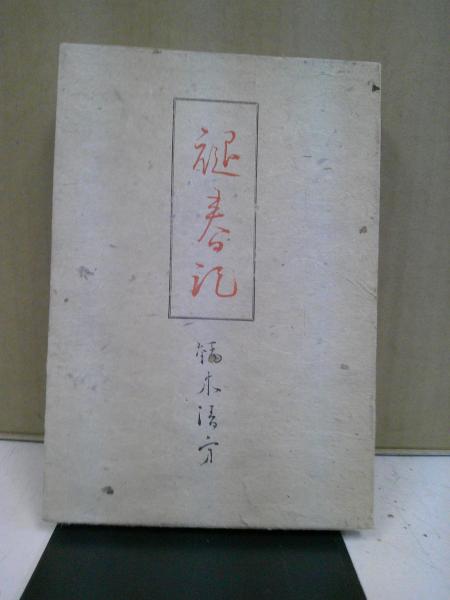 褪春記
鏑木清方